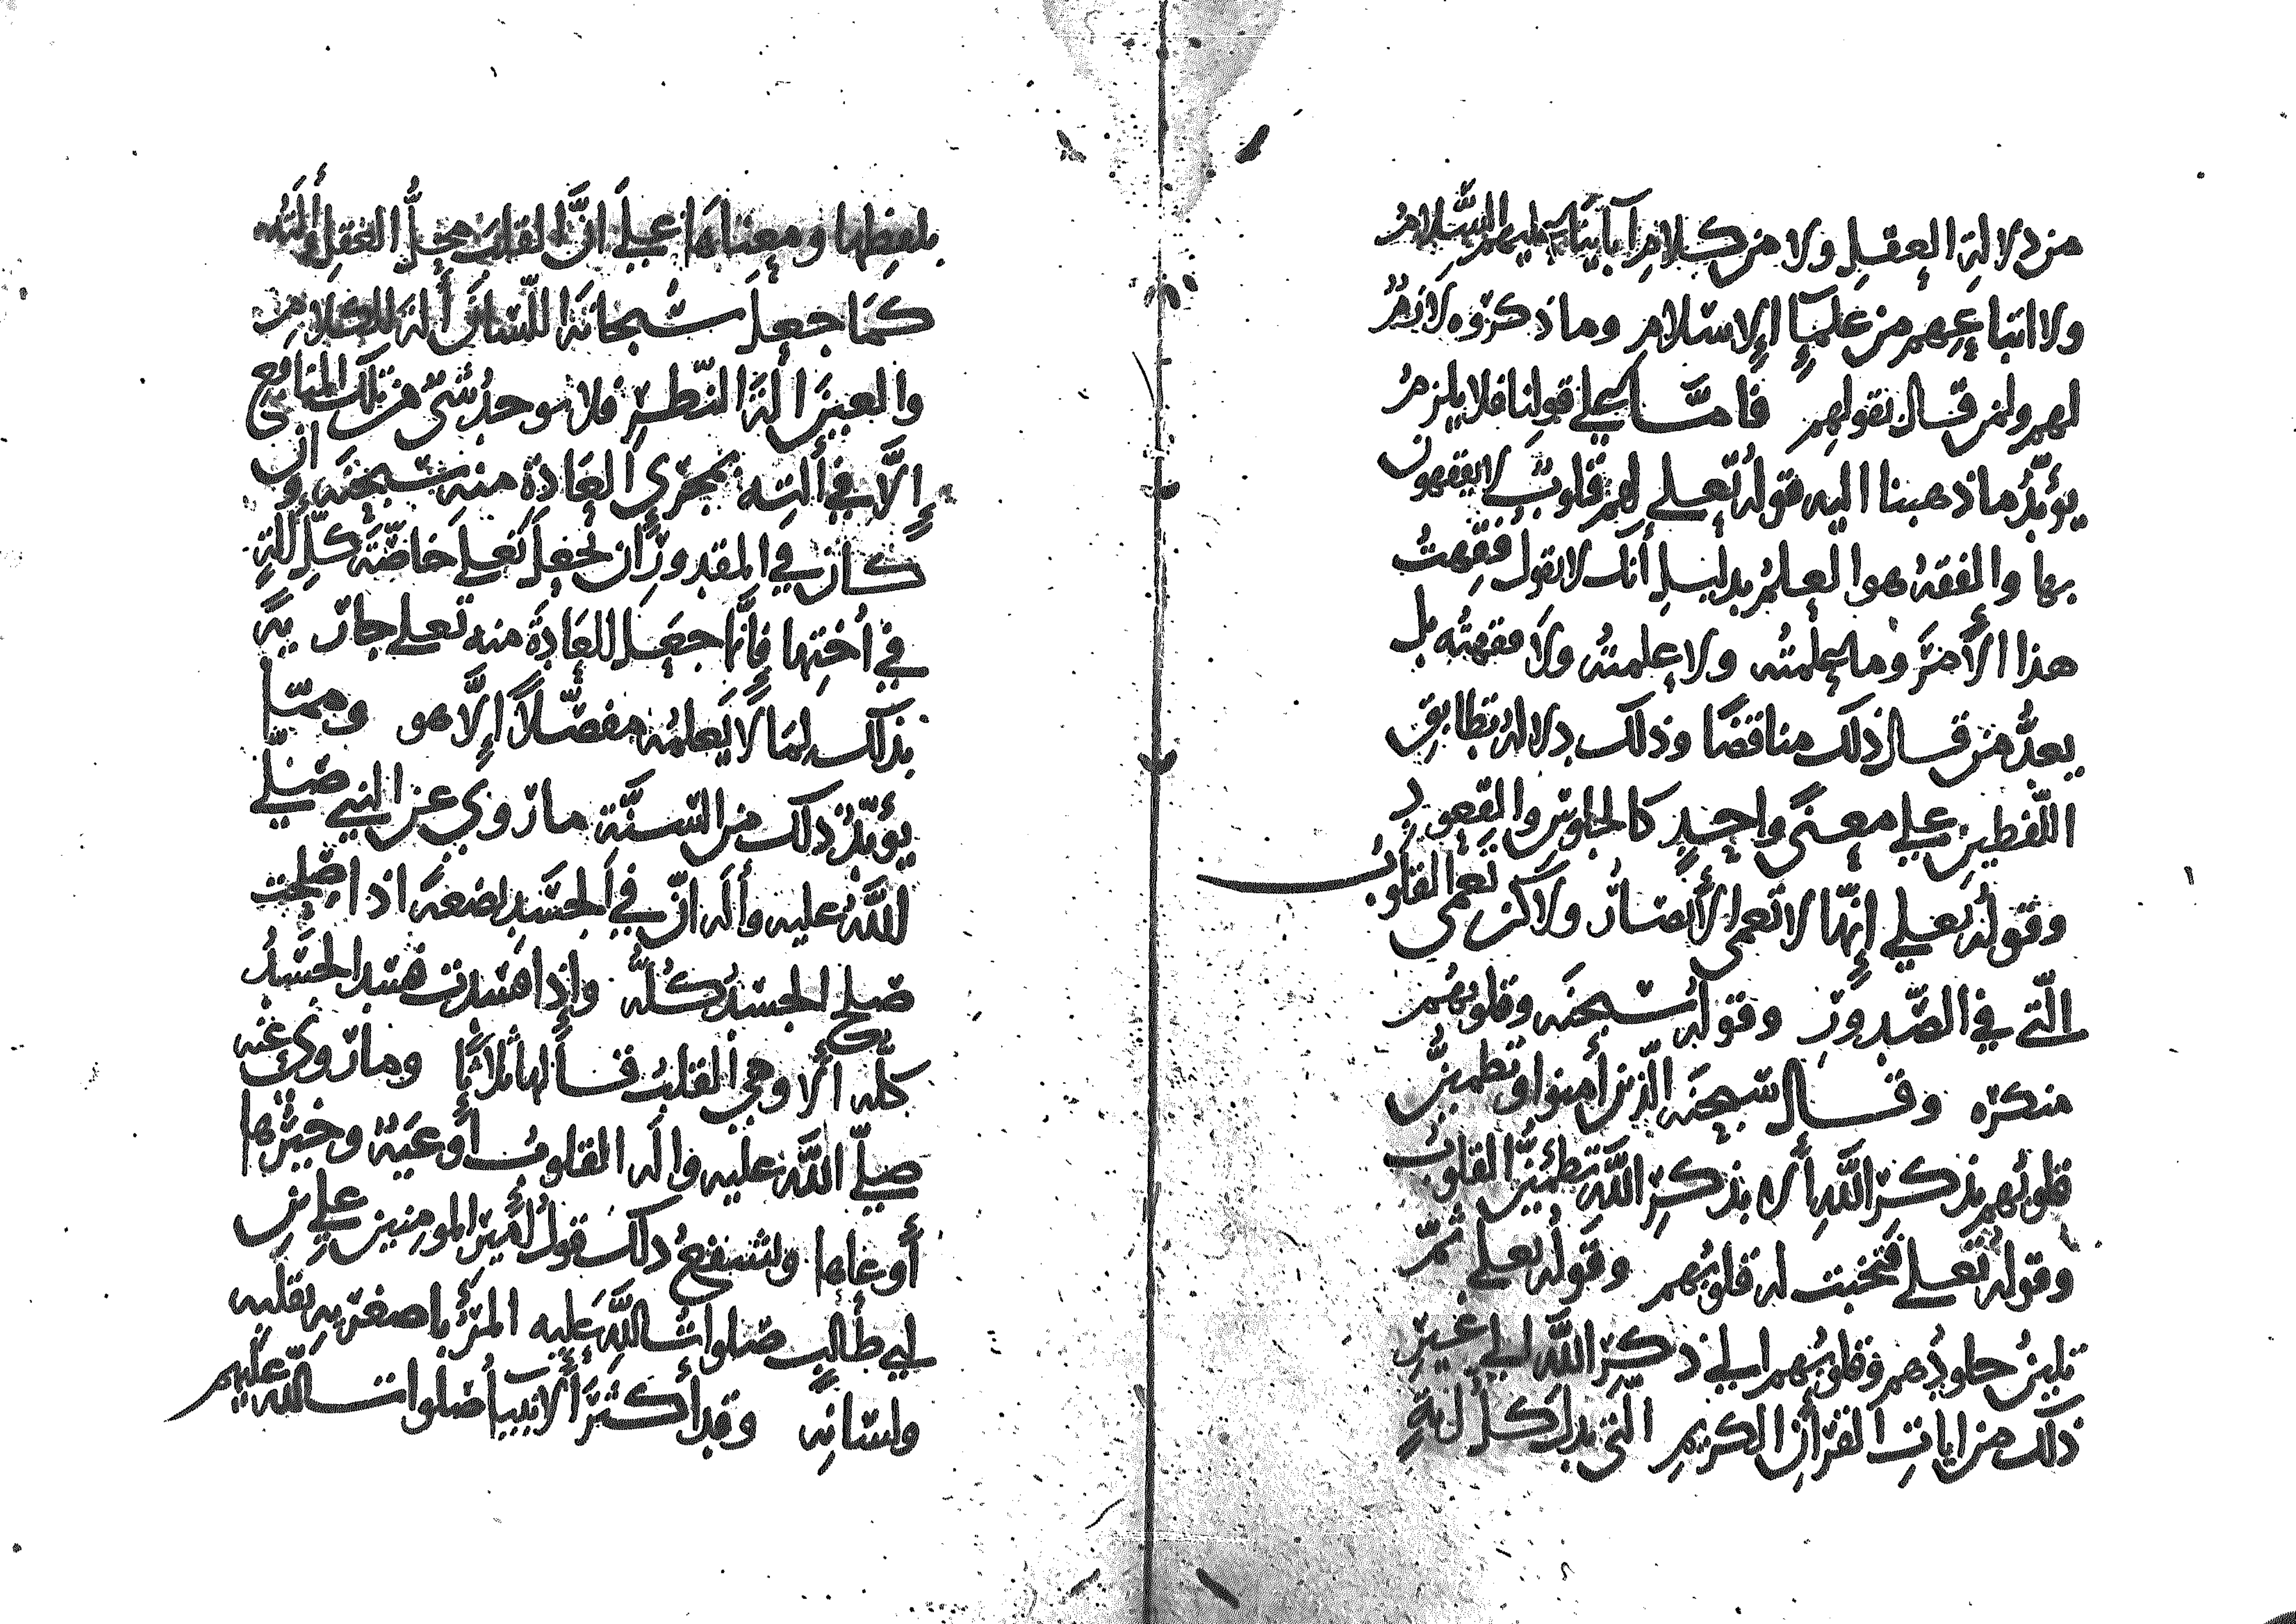 من دلالة العقل ولا من كلام آبائنا عليهم السلام
ولا اتباعهم من علمآء الإسلام وما ذكروه لازم
لهم ولمن قال بقولهم فامّا على قولنا فلا يلزم
يؤيّد ما ذهبنا اليه قوله تعلى لهم قلوب لا يفقهون
بها والفقه هو العلم بدليل أنك لا تقول فقهت
هذا الأمر وما علمته ولا علمته ولا فقهته بل
يعدّ من قال ذلك مناقضًا وذلك دلالة تطابق
اللّفظين على معنًى واحدٍ كالجلوس والقعود
وقوله تعلى إنّها لا تعمى الأبصار ولاكن تعمى القلوب
الّتي في الصّدور وقوله سبحنه وقلوبهم
منكرة وقال سبحنه الّذين أمنوا وتطمينّ
قلوبهم بذكر اللّه ألا بذكر اللّه تطمئنّ القلوب
وقوله تعلى فتخبت له قلوبهم وقوله تعلى ثمّ
تلين جلودهم وقلوبهم الى ذكر اللّه الى غير
ذلك من ايات القرأن الكريم الّتي يدل كل أية
بلفظها ومعناها على انّ القلب محلّ العقل وألته
كما جعل سبحانه اللّسان ألة للكلام
والعين ألة النّظر فلا يوجد شئ من تلك المنافع
إلّا في ألته بمجرى العادة منه سبحنه وان
كان في المقدور ان يجعل تعلى خاصّة كلّ ألة
في أختها فإنّما جعل للعادة منه تعلى جارية
بذلك لما لا يعلمه مفصّلاً إلّا هو وممّا
يؤيّد ذلك من السّنّة ما روي عن النبي صلى
اللّه عليه وأله انّ في الجسد لضغة اذا صلحت
صلح الجسد كلّه وإذا فسدت فسد الجسد
كلّه ألا وهي القلب قالها ثلاثًا وما روي عنه
صلّى اللّه عليه واله القلوب أوعية وخيرها
أوعاها ويشفع ذلك قول أمير المومنين علي بن
ابي طالب صلوات اللّه عليه المرء باصغريه بقلبه
ولسانه وقد أكثر الانبيا صلوات اللّه عليهم